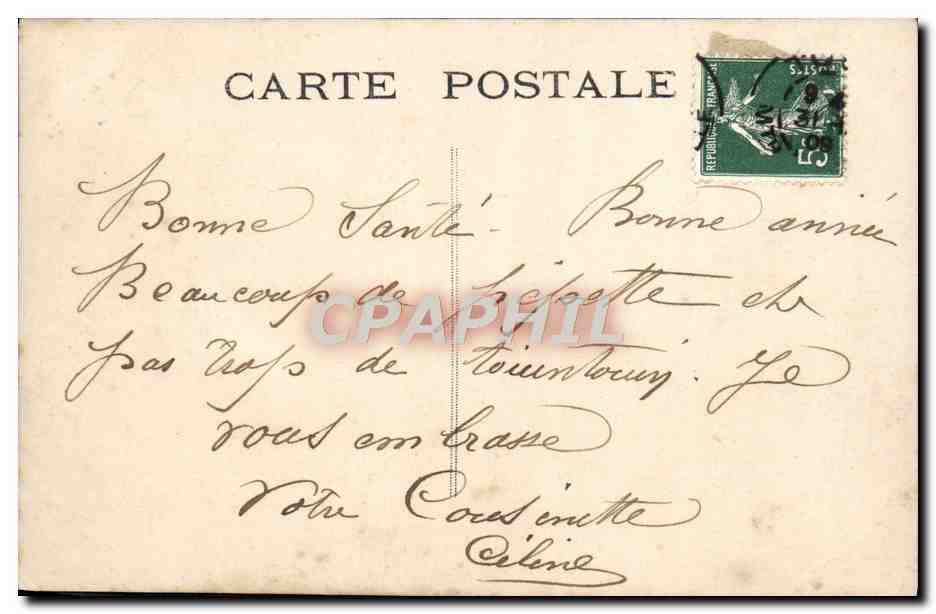 CARTE POSTALE
REPUBLIQUE FRANÇAISE
POSTES
5c
Bonne Santé. Bonne année
Beaucoup de pépette et
pas trop de touintouin. Je
vous embrasse
Votre Cousinette
Céline
CPAPHIL